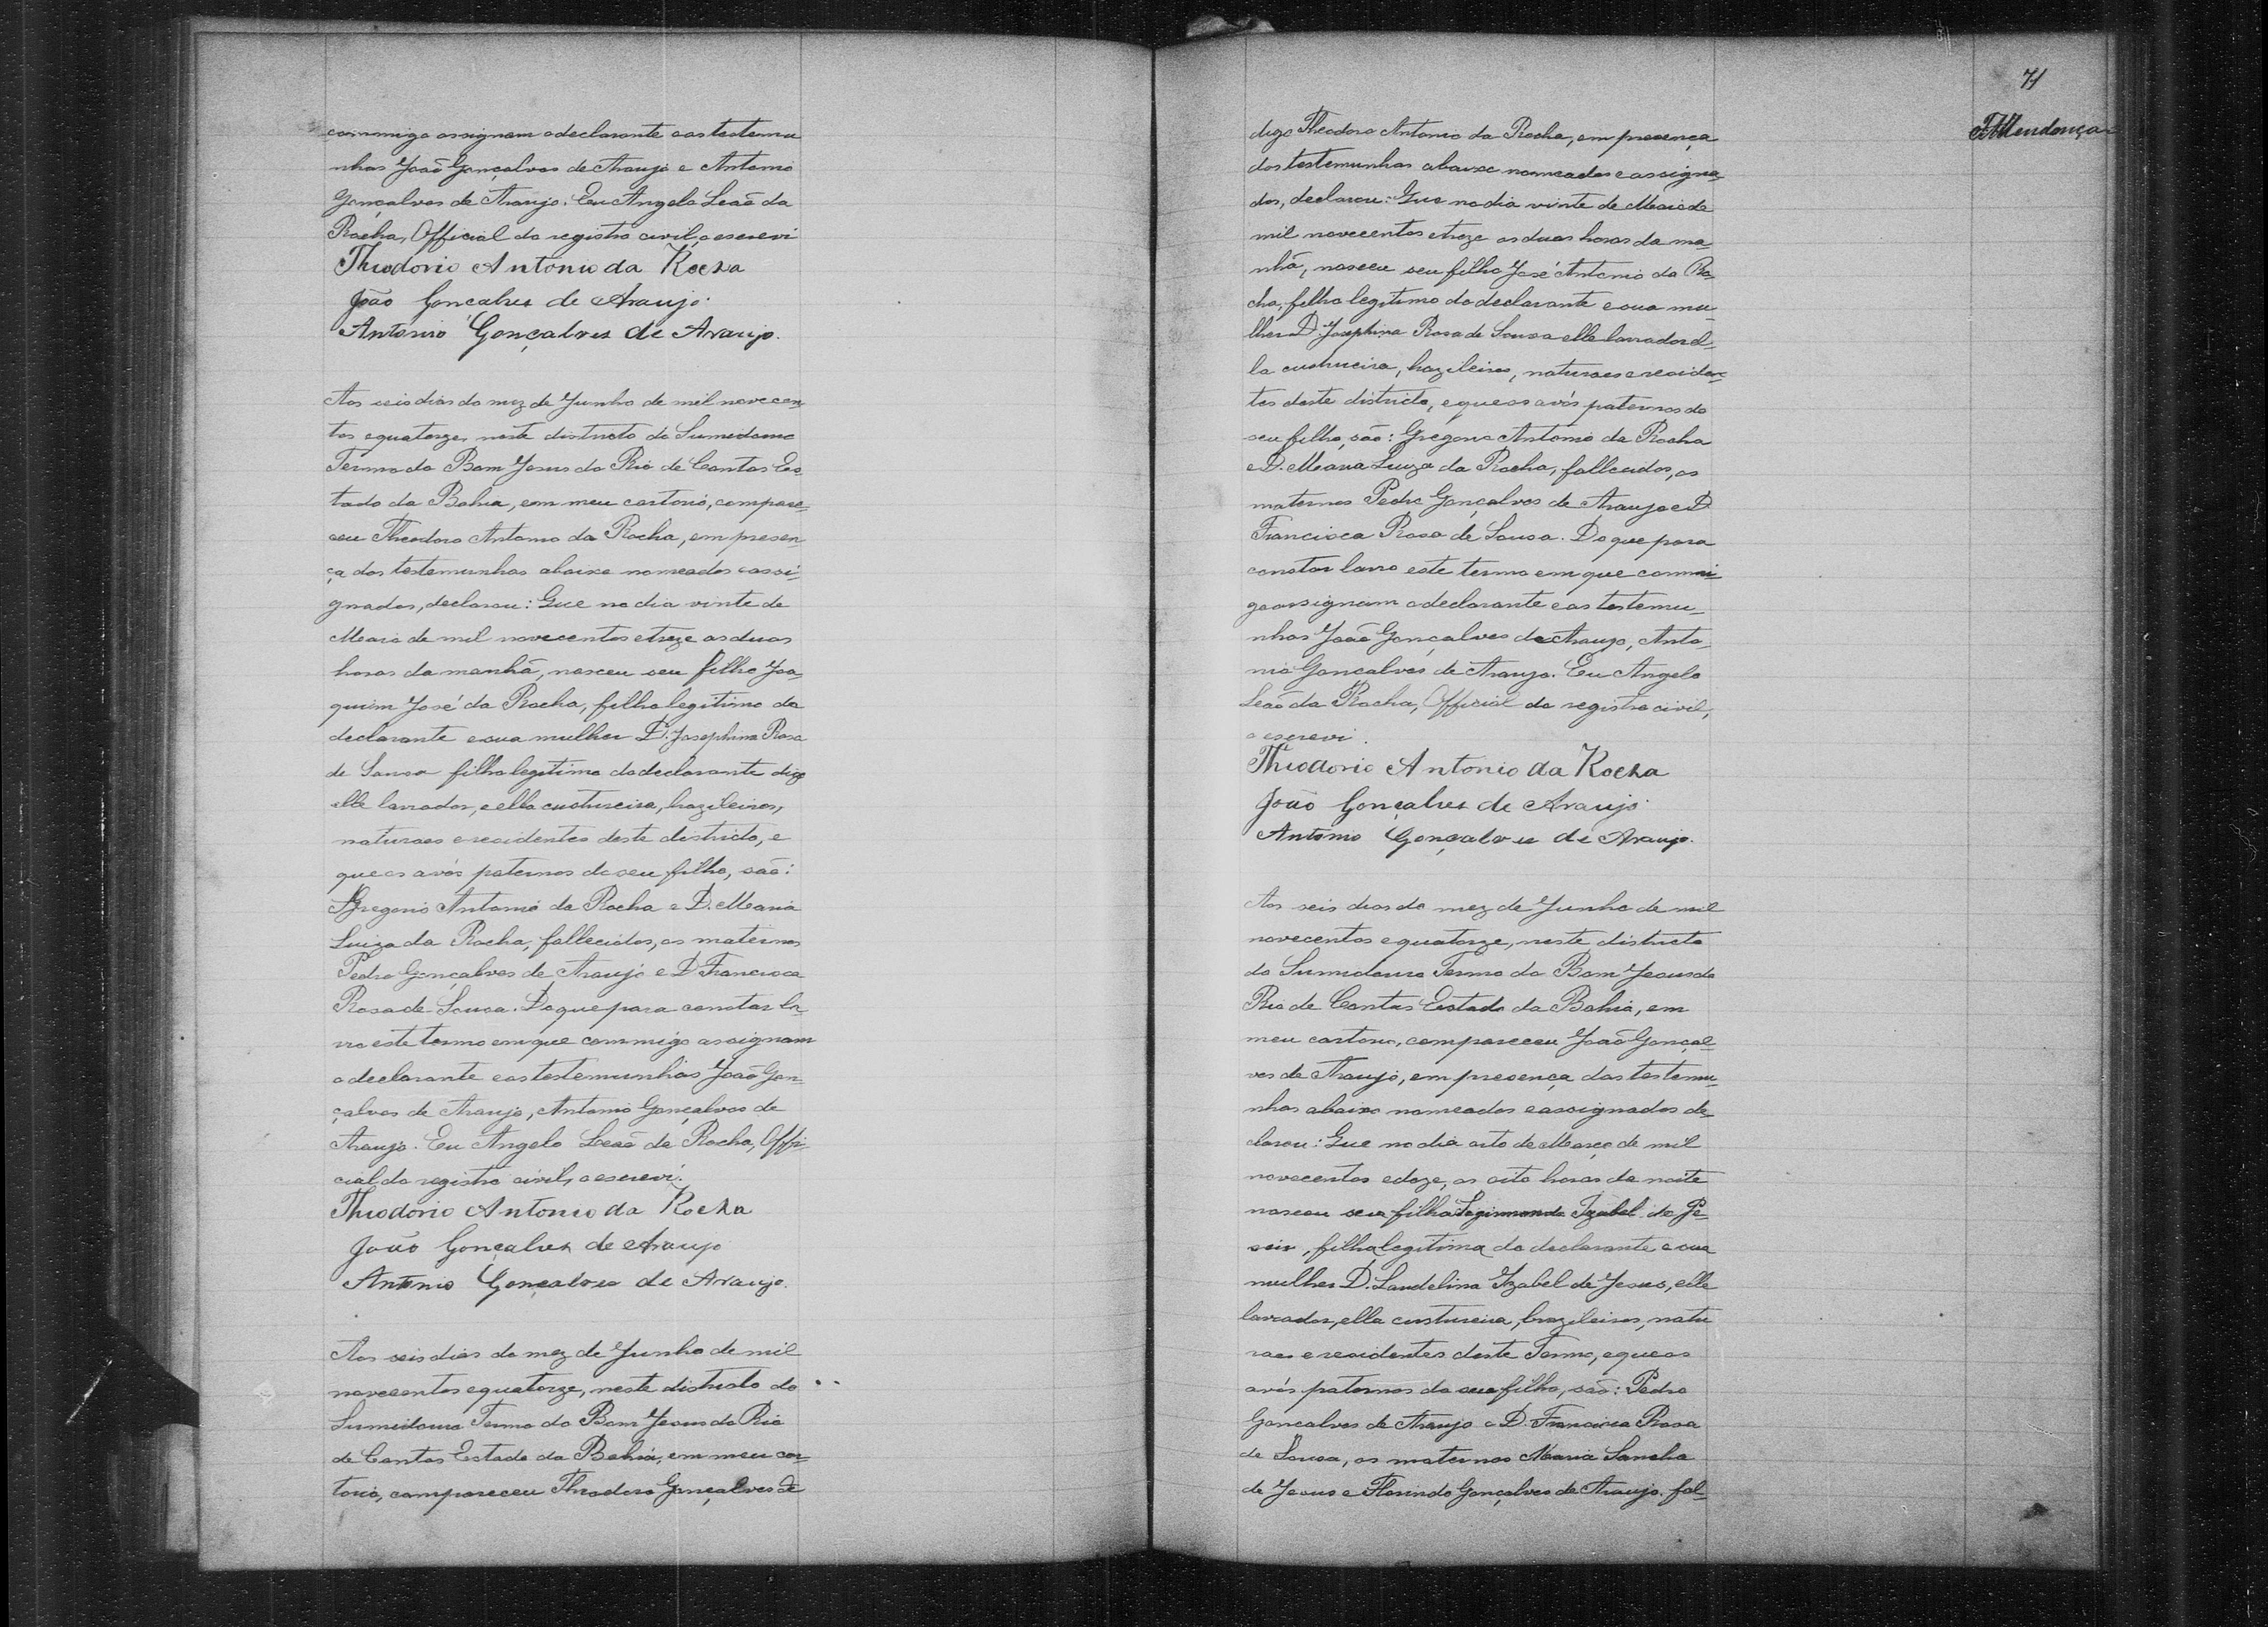 commigo assignam o declarante e as testemu
nhas João Gonçalves de Araujo e Antonio
Gonçalves de Araujo. Eu Angelo Leão da
Rocha, Official do registro civil, o escrevi
Theodorio Antonio da Rocha
João Goncalves de Araujo.
Antonio Gonçalves de Araujo.
Aos seis dias do mez de Junho de mil novecen
tos e quatorze, neste districto do Sumidouro
Termo do Bom Jesus do Rio de Contas Es
tado da Bahia, em meu cartorio, compare-
ceu Theodoro Antonio da Rocha, em presen
ça das testemunhas abaixo nomeadas e assi-
gnadas, declarou: Que no dia vinte de
Maio de mil novecentos e treze as duas
horas da manhã, nasceu seu filho Joa-
quim José da Rocha, filho legitimo do
declarante e sua mulher D. Josephina Rosa
de Sousa filho legitimo do declarante digo
elle lavrador, e ella custureira, brazileiros,
naturaes e residentes deste districto, e
que os avós paternos de seu filho, são:
Gregorio Antonio da Rocha e D. Maria
Luiza da Rocha, fallecidos, os maternos
Pedro Gonçalves de Araujo e D. Francisca
Rosa de Sousa. Do que para constar la-
vro este termo em que commigo assignam
o declarante e as testemunhas João Gon-
çalves de Araujo, Antonio Gonçalves de
Araujo. Eu Angelo Leão da Rocha, Offi-
cial do registro civil, o escrevi.
Theodorio Antonio da Rocha
João Gonçalves de Araujo
Antonio Gonçalves de Araujo.
Aos seis dias do mez de Junho de mil
novecentos e quatorze, neste districto do
Sumidouro Termo do Bom Jesus do Rio
de Contas Estado da Bahia, em meu car-
torio, compareceu Theodoro Gonçalves de
71
Mendonça
digo Theodoro Antonio da Rocha, em presença
das testemunhas abaixo nomeadas e assigna-
das, declarou: Que no dia vinte de Maio de
mil novecentos e treze as duas horas da ma-
nhã, nasceu seu filho José Antonio da Ro-
cha, filho legitimo do declarante e sua mu
lher D. Josephina Rosa de Sousa elle lavrador el-
la custureira, brazileiros, naturaes e residen-
tes deste districto, e que os avós paternos do
seu filho, são: Gregorio Antonio da Rocha
e D. Maria Luiza da Rocha, fallecidos, os
maternos Pedro Gonçalves de Araujo e D.
Francisca Rosa de Sousa. Do que para
constar lavro este termo em que commi-
go assignam o declarante e as testemu-
nhas João Gonçalves de Araujo, Anto-
nio Gonçalves de Araujo. Eu Angelo
Leão da Rocha, Official do registro civil,
o escrevi.
Theodorio Antonio da Rocha
João Gonçalves de Araujo.
Antonio Gonçalves de Araujo.
Aos seis dias do mez de Junho de mil
novecentos e quatorze, neste districto
do Sumidouro Termo do Bom Jesus do
Rio de Contas Estado da Bahia, em
meu cartorio, compareceu João Gonçal-
ves de Araujo, em presença das testemu-
nhas abaixo nomeadas e assignadas de-
clarou: Que no dia oito de Março de mil
novecentos e doze, as oito horas da noite
nasceu sua filha Izabel de
filha legitima do declarante e sua
mulher D. Laudelina Izabel de Jesus, elle
lavrador, ella custureira, brazileiros, natu
raes e residentes deste Termo, e que os
avós paternos de sua filha, são: Pedro
Goncalves de Araujo e D. Francisca Rosa
de Sousa, os maternos Maria Sancha
de Jesus e Florindo Gonçalves de Araujo, fal-